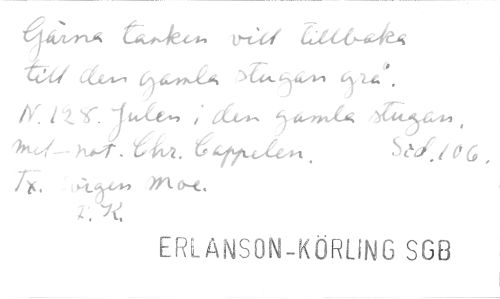 Gärna tanken vill tillbaka
till den gamla stugan grå.
N. 128. Julen i den gamla stugan.
mel-not. Chr. Cappelen. Sid. 106.
Tx. Jörgen Moe.
K.
ERLANSON-KÖRLING SGB